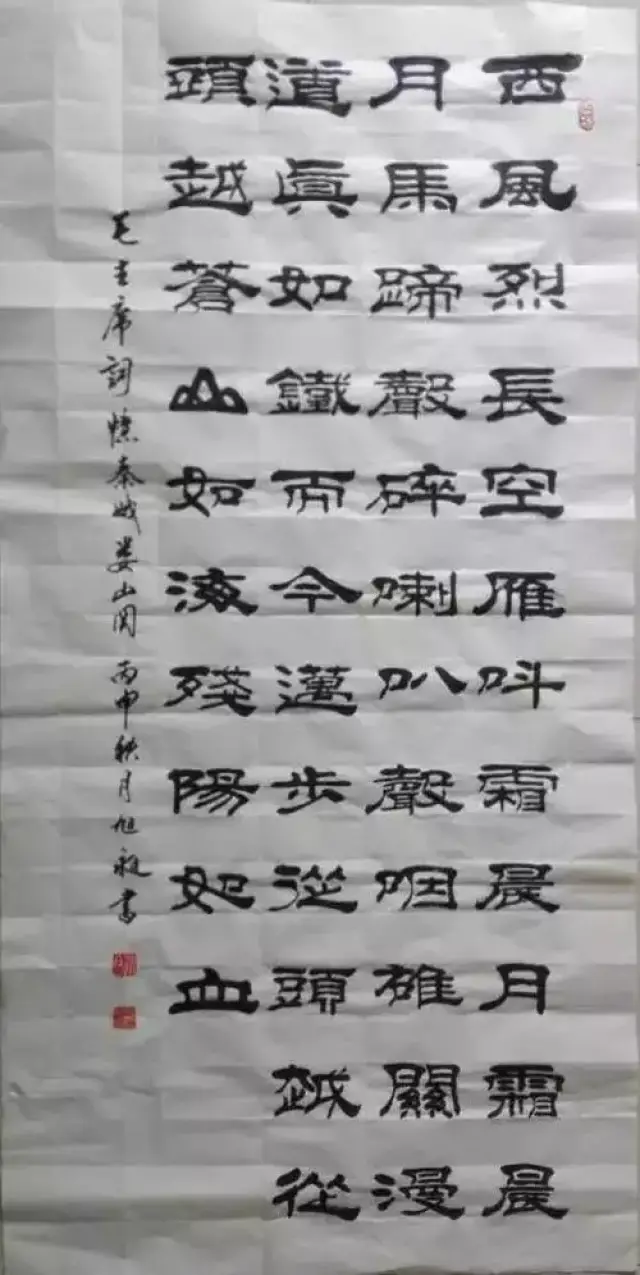 西風烈長空雁呌霜晨月霜晨
月馬蹄聲碎喇叭聲咽雄關漫
道真如鐵而今邁步從頭越從
頭越蒼山如海殘陽如血
毛主席詞憶秦娥婁山関 丙申秋月旭 書